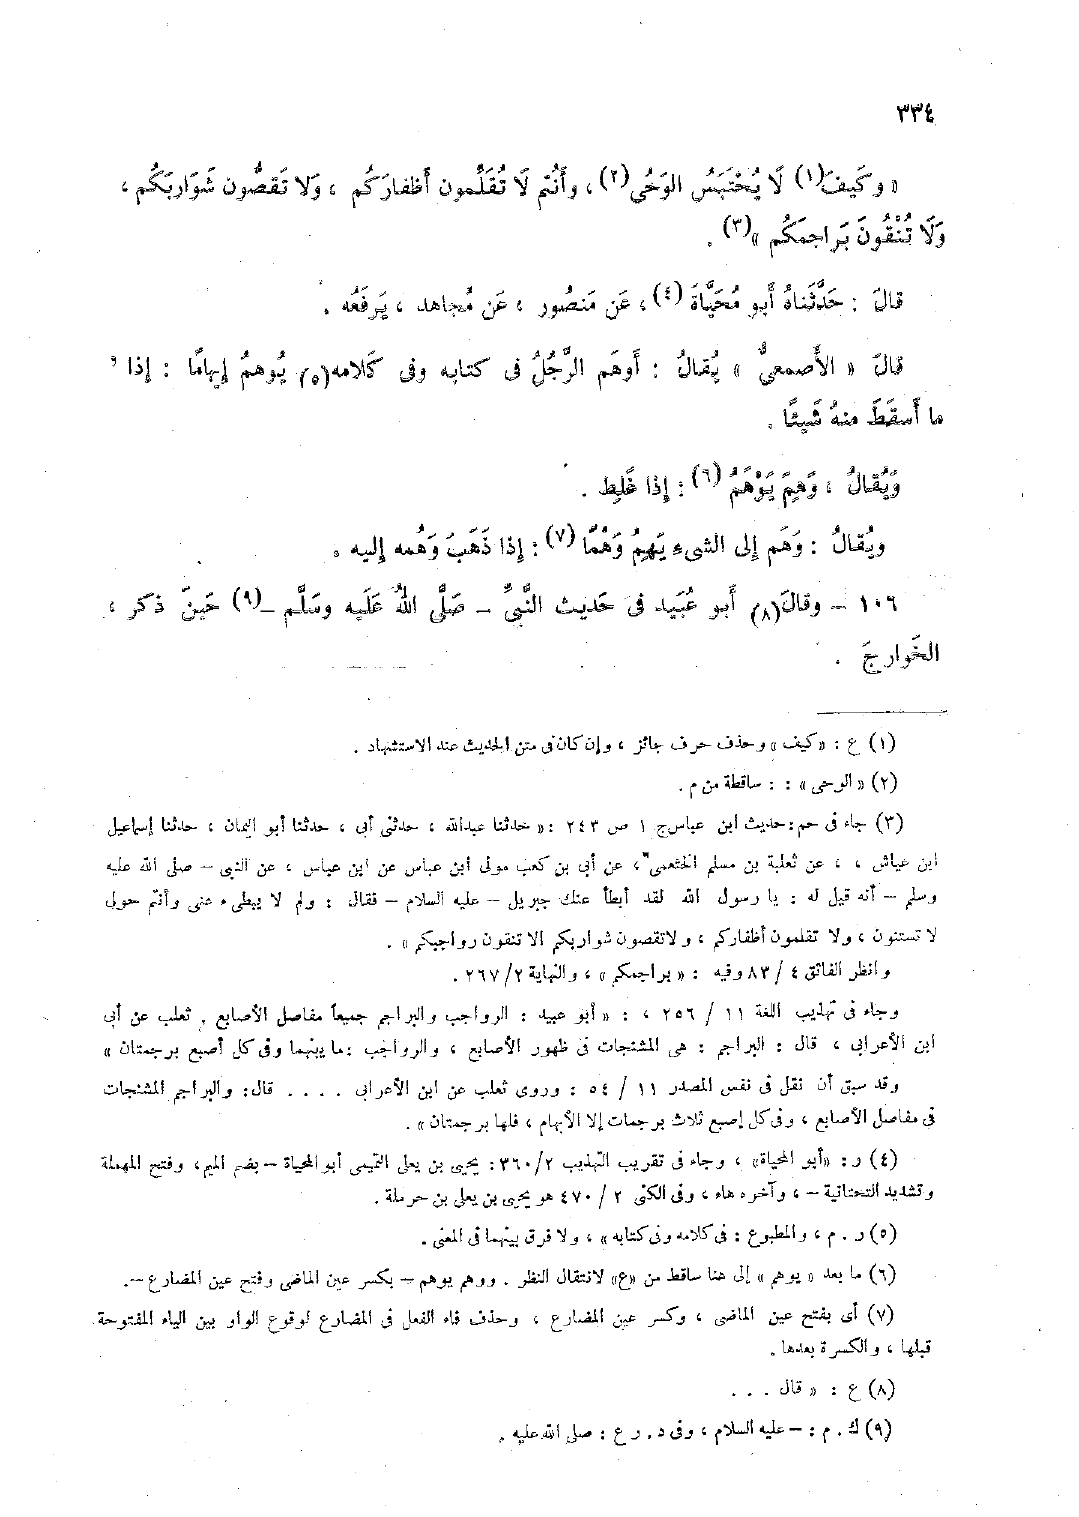 ٣٣٤
« وكَيفَ(١) لَا يُحْتَبَسُ الوَحْى(٢) ، وأَنْتُم لَا تُقَلِّمون أَظفارَكُم ، وَلا تَقصُّون شَوَاربَكُم ،
وَلَا تُنْقُونَ بَراجمَكُم »(٣) .
قالَ : حَدَّثَناهُ أَبو مُحَيَّاةَ (٤) ، عَن مَنصُور ، عَن مُجاهد ، يَرفَعُه .
قالَ « الأَصمعىُّ » يُقالُ : أَوهَم الرَّجُلُ فى كتابه وفى كَلامه(٥) يُوهمُ إِيهامًا : إذا
ما أَسقَطَ منهُ شَيئًا .
وَيُقالُ ، وَهِمَ يَوْهَمُ (٦) : إِذا غَلِط .
ويُقالُ : وَهَم إلى الشىءِ يَهِمُ وَهْمًا (٧) : إذا ذَهَبَ وَهْمه إليه .
١٠٦ – وقالَ(٨) أَبو عُبَيد فى حَديث النَّبىِّ – صَلَّى اللهُ عَلَيه وسَلَّم –(٩) حَينَ ذكر
الخَوارجَ .
(١) ع : «كيف» وحذف حرف جائز ، وإن كان فى متن الحديث عند الاستشهاد .
(٢) « الوحى » : : ساقطة من م .
(٣) جاء فى حم : حديث ابن عباس ج ١ ص ٢٤٣ : « حدثنا عبدالله ، حدثنى أبى ، حدثنا أبو اليمان ، حدثنا إسماعيل
ابن عياش ، ، عن ثعلبة بن مسلم الخثعمى ، عن أبى بن كعب مولى ابن عباس عن ابن عباس ، عن النبى – صلى الله عليه
وسلم – أنه قيل له : يا رسول الله لقد أبطأ عنك جبريل – عليه السلام – فقال : ولم لا يبطىء عنى وأنتم حولى
لا تستنون ، ولا تقلمون أظفاركم ، ولاتقصون شواربكم الا تنقون رواجبكم » .
وانظر الفائق ٤ / ٨٣ وفيه : « براجمكم » ، والنهاية ٢ / ٢٦٧ .
وجاء فى تهذيب اللغة ١١ / ٢٥٦ ، : « أبو عبيد : الرواجب والبراجم جميعاً مفاصل الأصابع . ثعلب عن أبى
ابن الأعرابى ، قال : البراجم : هى المشنجات فى ظهور الأصابع ، والرواجب : ما بينهما وفى كل أصبع برجمتان »
وقد سبق أن نقل فى نفس المصدر ١١ / ٥٤ : وروى ثعلب عن ابن الأعرابى . . . . قال : والبراجم المشنجات
فى مفاصل الأصابع ، وفى كل إصبع ثلاث برجمات إلا الأبهام ، فلها برجمتان » .
(٤) ر : «أبو المحياة» ، وجاء فى تقريب التهذيب ٢ / ٣٦٠ : يحيى بن يعلى التميمى أبو المحياة – بضم الميم ، وفتح المهملة
وتشديد التحتانية – ، وآخره هاء ، وفى الكنى ٢ / ٤٧٠ هو يحيى بن يعلى بن حرملة .
(٥) ر . م ، والمطبوع : فى كلامه وفى كتابه » ، ولا فرق بينهما فى المعنى .
(٦) ما بعد « يوهم » إلى هنا ساقط من «ع» لانتقال النظر . ووهم يوهم – بكسر عين الماضى وفتح عين المضارع – .
(٧) أى بفتح عين الماضى ، وكسر عين المضارع ، وحذف فاء الفعل فى المضارع لوقوع الواو بين الياء المفتوحة
قبلها ، والكسرة بعدها .
(٨) ع : « قال . . .
(٩) ك . م : – عليه السلام ، وفى د . ر ع : صلى الله عليه .